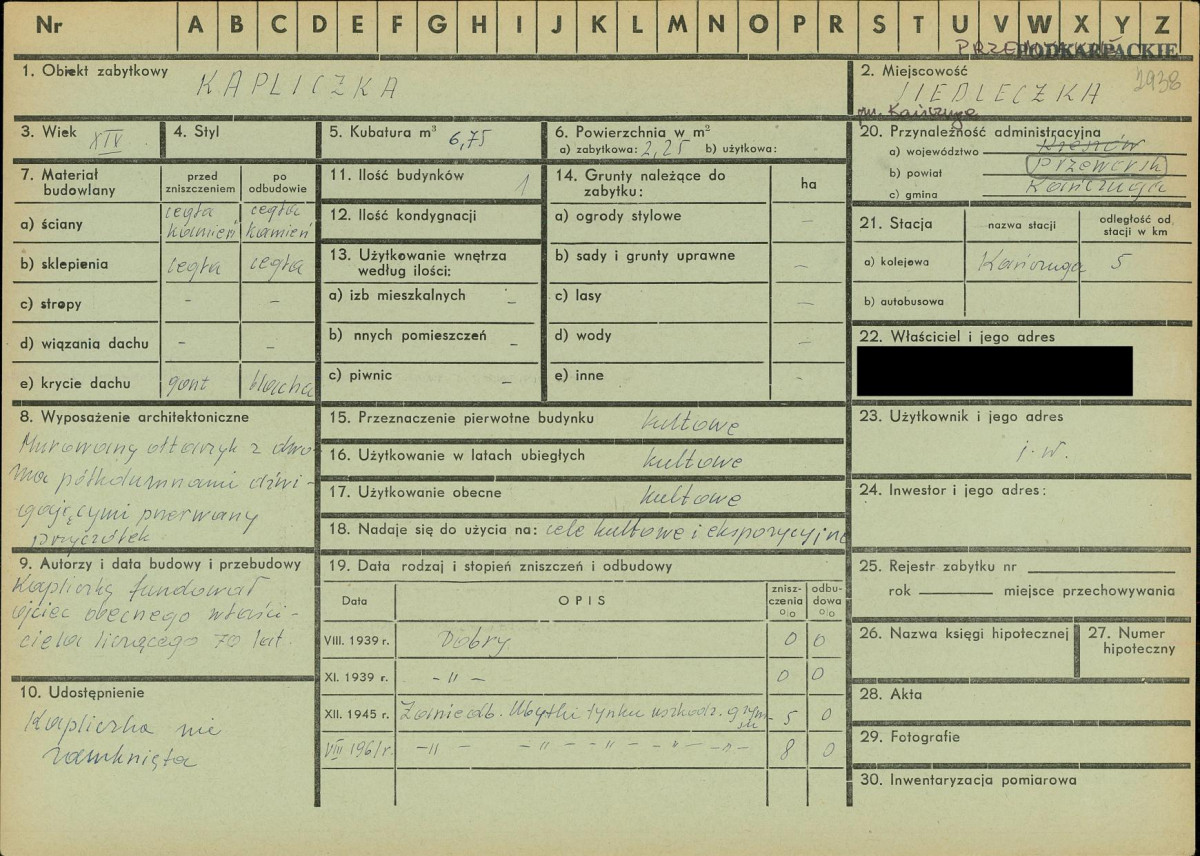 Nr A B C D E F G H I J K L M N O P R S T U V W X Y Z
PODKARPACKIE
1. Obiekt zabytkowy KAPLICZKA
2. Miejscowość 2938
SIEDLECZKA
gm. Kańczuga
3. Wiek XIV
4. Styl
5. Kubatura m³ 6,75
6. Powierzchnia w m²
a) zabytkowa: 2,25 b) użytkowa:
20. Przynależność administracyjna
a) województwo Rzeszów
b) powiat Przeworsk
c) gmina Kańczuga
7. Materiał budowlany
przed zniszczeniem
po odbudowie
a) ściany cegła kamień cegła kamień
b) sklepienia cegła cegła
c) stropy - -
d) wiązania dachu - -
e) krycie dachu gont blacha
11. Ilość budynków 1
12. Ilość kondygnacji
13. Użytkowanie wnętrza
według ilości:
a) izb mieszkalnych -
b) nnych pomieszczeń -
c) piwnic -
14. Grunty należące do
zabytku: ha
a) ogrody stylowe -
b) sady i grunty uprawne -
c) lasy -
d) wody -
e) inne
21. Stacja
nazwa stacji
odległość od.
stacji w km
a) kolejowa Kańczuga 5
b) autobusowa
22. Właściciel i jego adres
8. Wyposażenie architektoniczne
Murowany ołtarzyk z dwo-
ma półkolumnami dźwi-
gającymi przerwany
przyczółek
15. Przeznaczenie pierwotne budynku kultowe
16. Użytkowanie w latach ubiegłych kultowe
17. Użytkowanie obecne kultowe
18. Nadaje się do użycia na: cele kultowe i ekspozycyjne
23. Użytkownik i jego adres
j.w.
24. Inwestor i jego adres:
9. Autorzy i data budowy i przebudowy
Kapliczkę fundował
ojciec obecnego właści-
ciela liczącego 70 lat.
10. Udostępnienie
Kapliczka nie
zamknięta
19. Data rodzaj i stopień zniszczeń i odbudowy
Data OPIS znisz-
czenia
o/o odbu-
dowa
o/o
VIII. 1939 r. Dobry 0 0
XI. 1939 r. - " - 0 0
XII. 1945 r. Zaniedb. Ubytki tynku uszkodz. gzym-
su 5 0
VIII 1961 r. - " - - " - " - " - " - " - 8 0
25. Rejestr zabytku nr
rok miejsce przechowywania
26. Nazwa księgi hipotecznej
27. Numer
hipoteczny
28. Akta
29. Fotografie
30. Inwentaryzacja pomiarowa